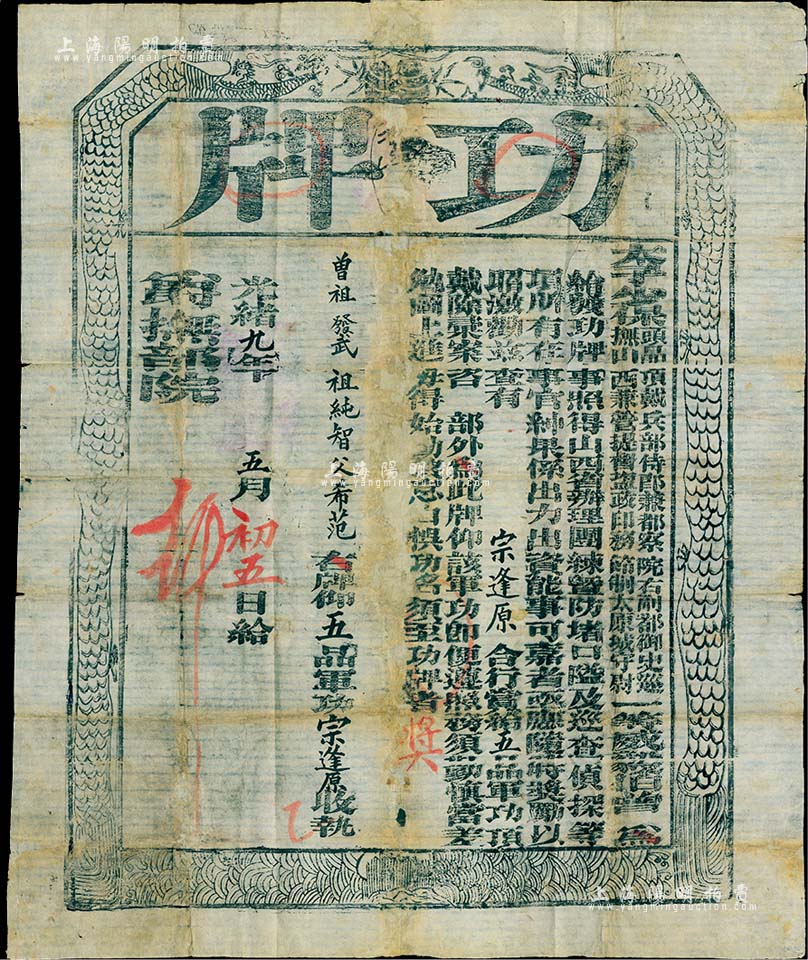 上海陽明拍賣
www.yangmingauction.com
功牌
頭品頂戴兵部侍郎兼都察院右副都御史巡撫山西兼管提督鹽政印務節制太原城守尉
給獎功牌事照得山西省辦理團練暨防堵口隘及巡查偵探等
項所有在事官紳果係出力出資能事可嘉者亟應隨時獎勵以
昭激勸茲查有 宗逢原 合行賞給五品軍功頂
戴除彙案咨 部外為此牌仰該軍功即便遵照務須勤慎當差
勉圖上進毋得始勤終怠自悞功名須至功牌者
獎
曾祖 發武 祖純智 父希范 右牌仰五品軍功宗逢原收執
光緒九年 五月初五日給
撫部院
上海陽明拍賣
www.yangmingauction.com
上海陽明拍賣
www.yangmingauction.com